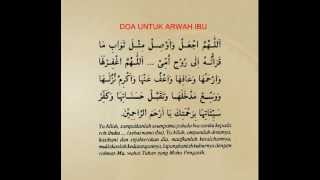 DOA UNTUK ARWAH IBU
اَللّٰهُمَّ اجْعَلْ وَأَوْصِلْ مِثْلَ ثَوَابِ مَا
قَرَأْتُهُ إِلَى رُوْحِ أُمِّيْ ... اَللّٰهُمَّ اغْفِرْلَهَا
وَارْحَمْهَا وَعَافِهَا وَاعْفُ عَنْهَا وَأَكْرِمْ نُزُلَهَا
وَوَسِّعْ مَدْخَلَهَا وَتَقَبَّلْ حَسَنَاتِهَا وَكَفِّرْ
سَيِّئَاتِهَا بِرَحْمَتِكَ يَا أَرْحَمَ الرَّاحِمِيْنَ
Ya Allah, sampaikanlah seumpama pahala bacaanku kepada
roh ibuku ... (sebut nama dia). Ya Allah, ampunilah dosanya,
kasihani dan sejahterakan dia, maafkanlah kesalahannya,
muliakanlah kedatangannya, lapangkanlah kuburnya dengan
rahmat-Mu, wahai Tuhan yang Maha Pengasih.